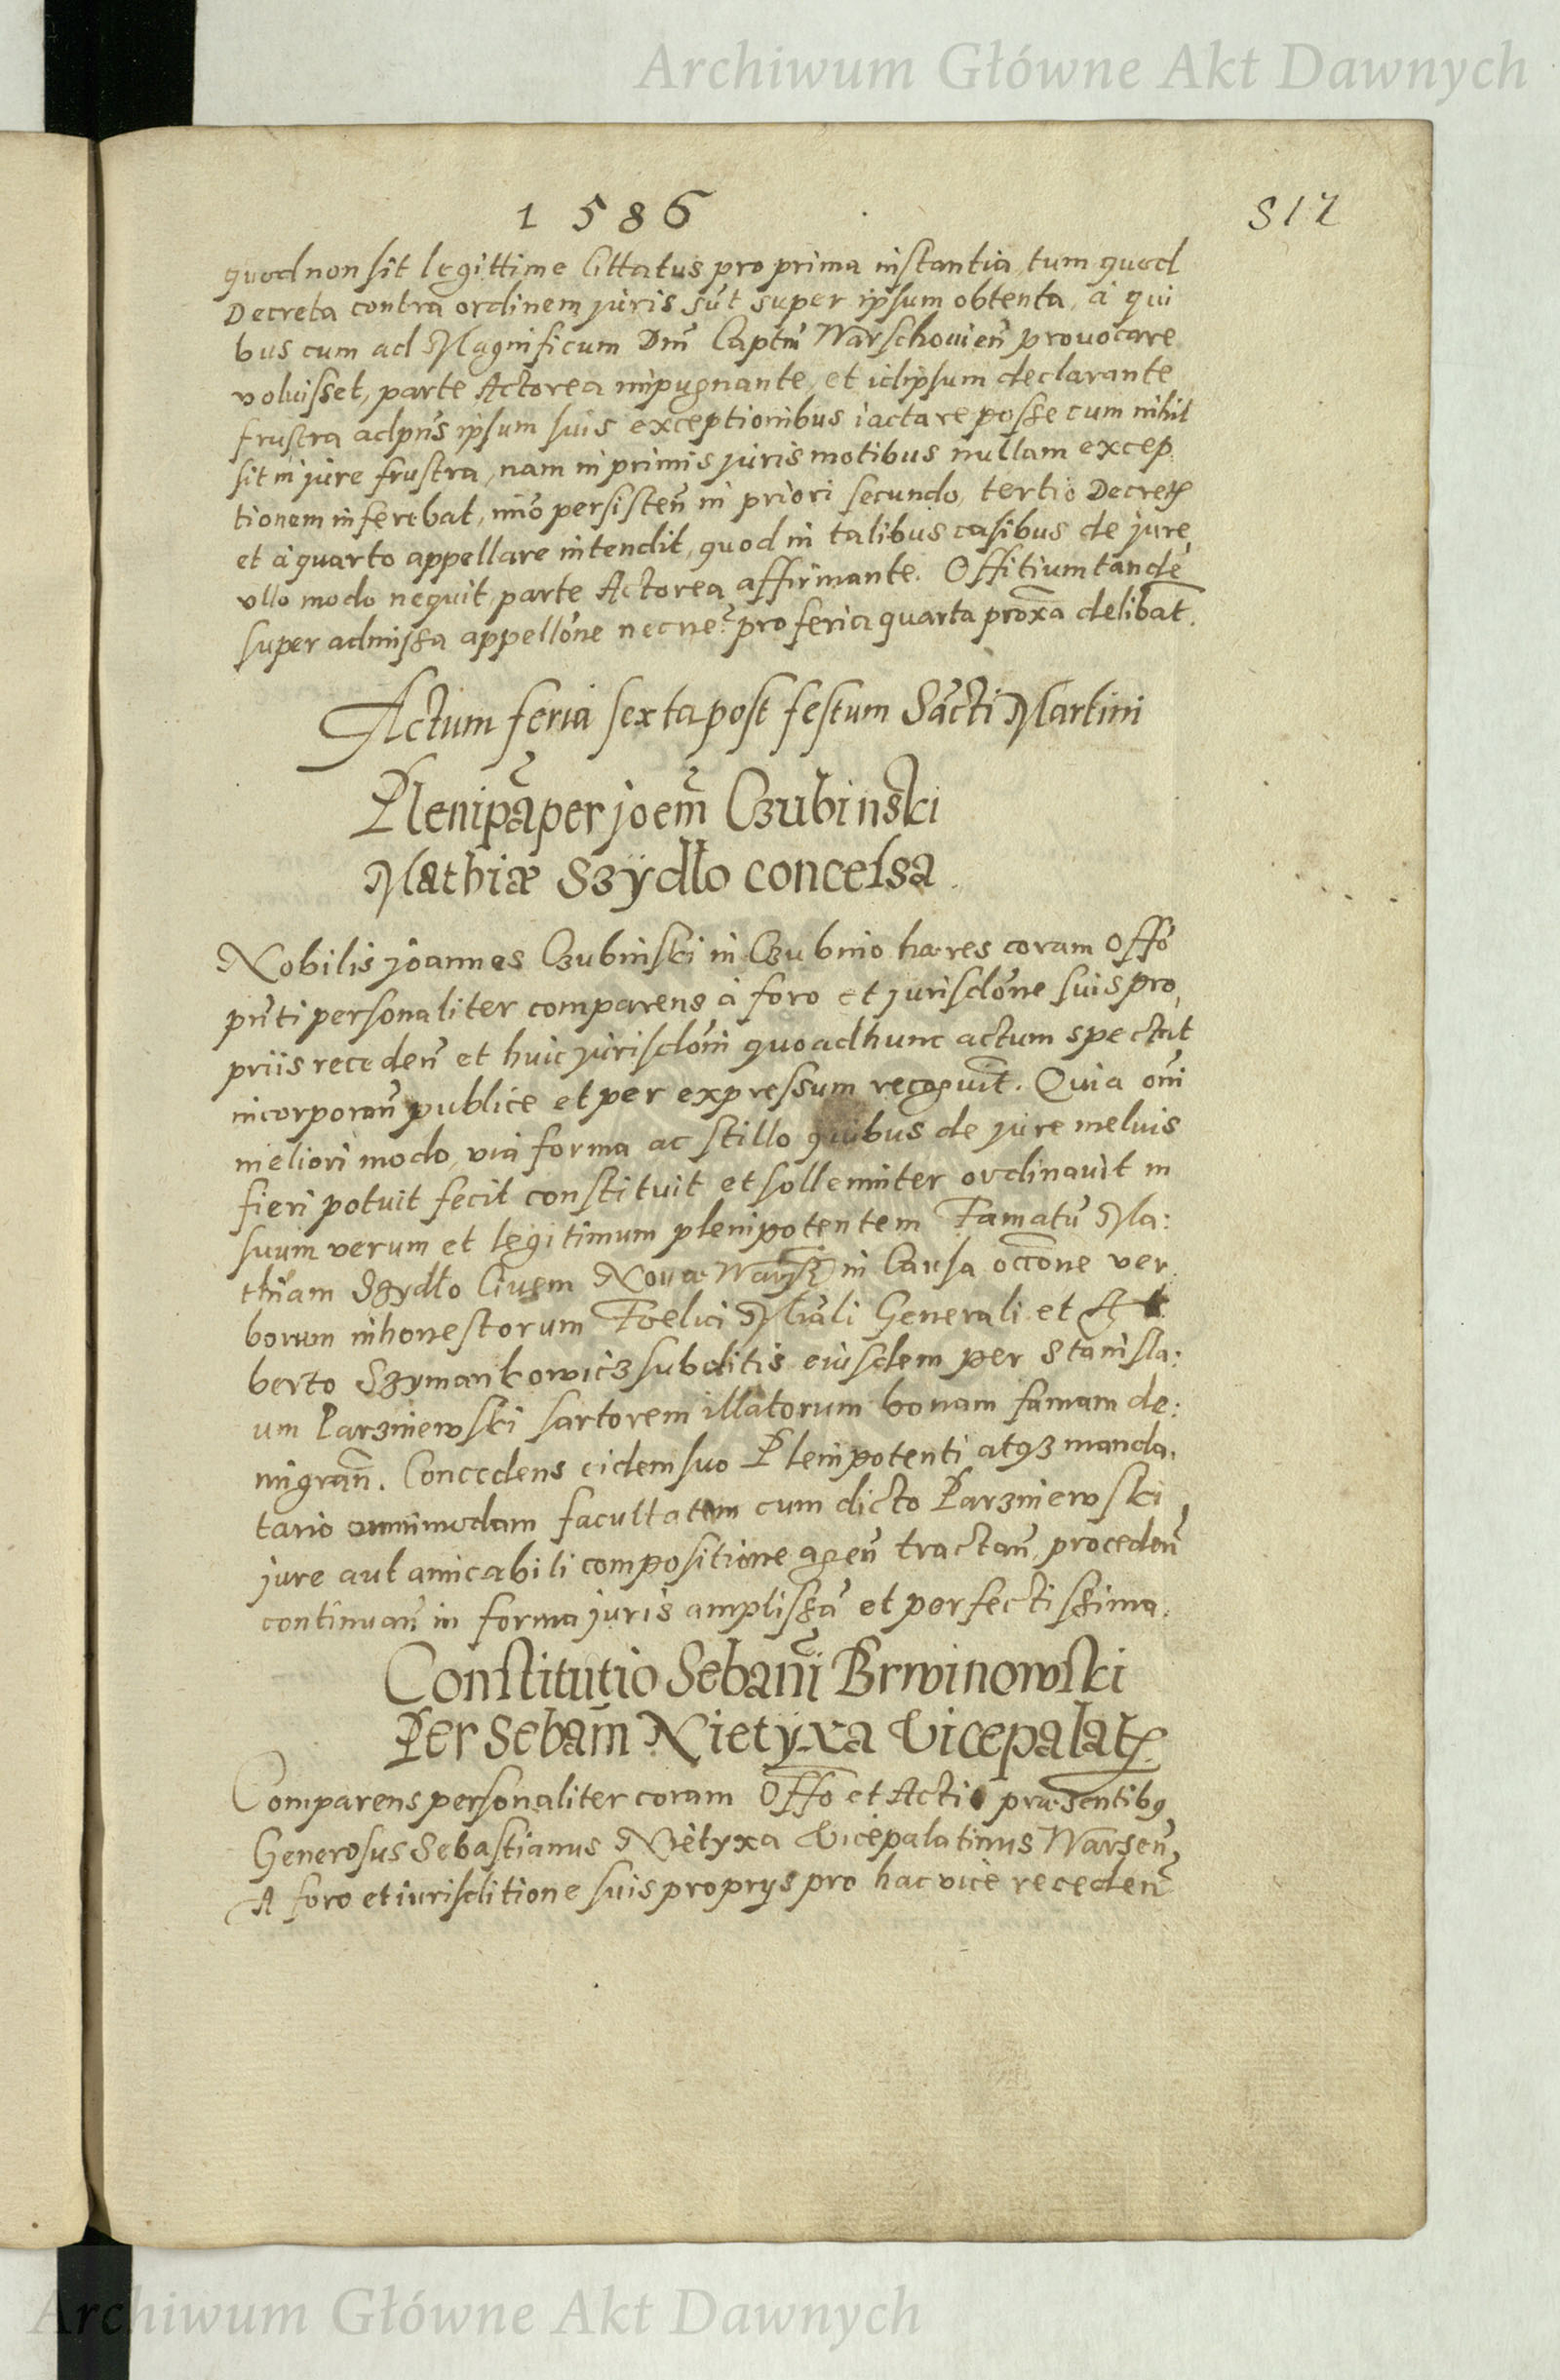 Archiwum Główne Akt Dawnych
1586
817
quod non sit legittime Cittatus pro prima instantia, tum quod
Decreta contra ordinem juris sūt super ipsum obtenta, à qui
bus cum ad Magnificum Dnū Captm̄ Warschouieñ prouocare
voluisset, parte Actorea impugnante, et idipsum declarante
frustra adpn̄s ipsum suis exceptionibus iactare posse cum nihil
sit in jure frustra, nam in primis juris motibus nullam excep
tionem inferebat, im̄o persisteñ in priori secundo, tertio Decret
et à quarto appellare intendit, quod in talibus casibus de jure
vllo modo nequit, parte Actorea affirmante. Offitium tandē
super admissa appellōne necne? pro feria quarta proxā delibat̄.
Actum feria sexta post festum Sācti Martini
Plenipā per joem̄ Czubinski
Mathiæ Szÿdło concessa
Nobilis joannes Czubinski in Czubino hæres coram Offō
pn̄ti personaliter comparens à foro et jurisdōne suis pro
priis recedeñ et huic jurisdōni quo ad hunc actum spectat
incorporañ publice et per expressum recoguit̄. Quia om̄i
meliori modo, via forma ac stillo quibus de jure melius
fieri potuit fecit constituit et sollemniter ordinauit in
suum verum et legitimum plenipotentem Famatū Ma:
thiam Szydło Ciuem Nouæ Warsz in Causa occōne ver
borum inhonestorum Foelici Mināli Generali et Al
berto Szymankowicz subditis eiusdem per Stanisla:
um Parzniewski sartorem illatorum bonam famam de:
nigrañ. Concedens eidem suo Plenipotenti atqz manda,
tario omnimodam facultatem cum dicto Parzniewski
jure aut amicabili compositione ageñ tractañ, procedeñ
continuañ in forma juris amplissā et perfectissima.
Constitutio Sebanī Brwinowski
Per Sebam̄ Nietÿxa Vicepalat
Comparens personaliter coram Offō et Actis præsentibq
Generosus Sebastianus Nietyxa Vicepalatinus Warseñ,
A foro et iurisditione suis proprys pro hac vice recedeñ
Archiwum Główne Akt Dawnych